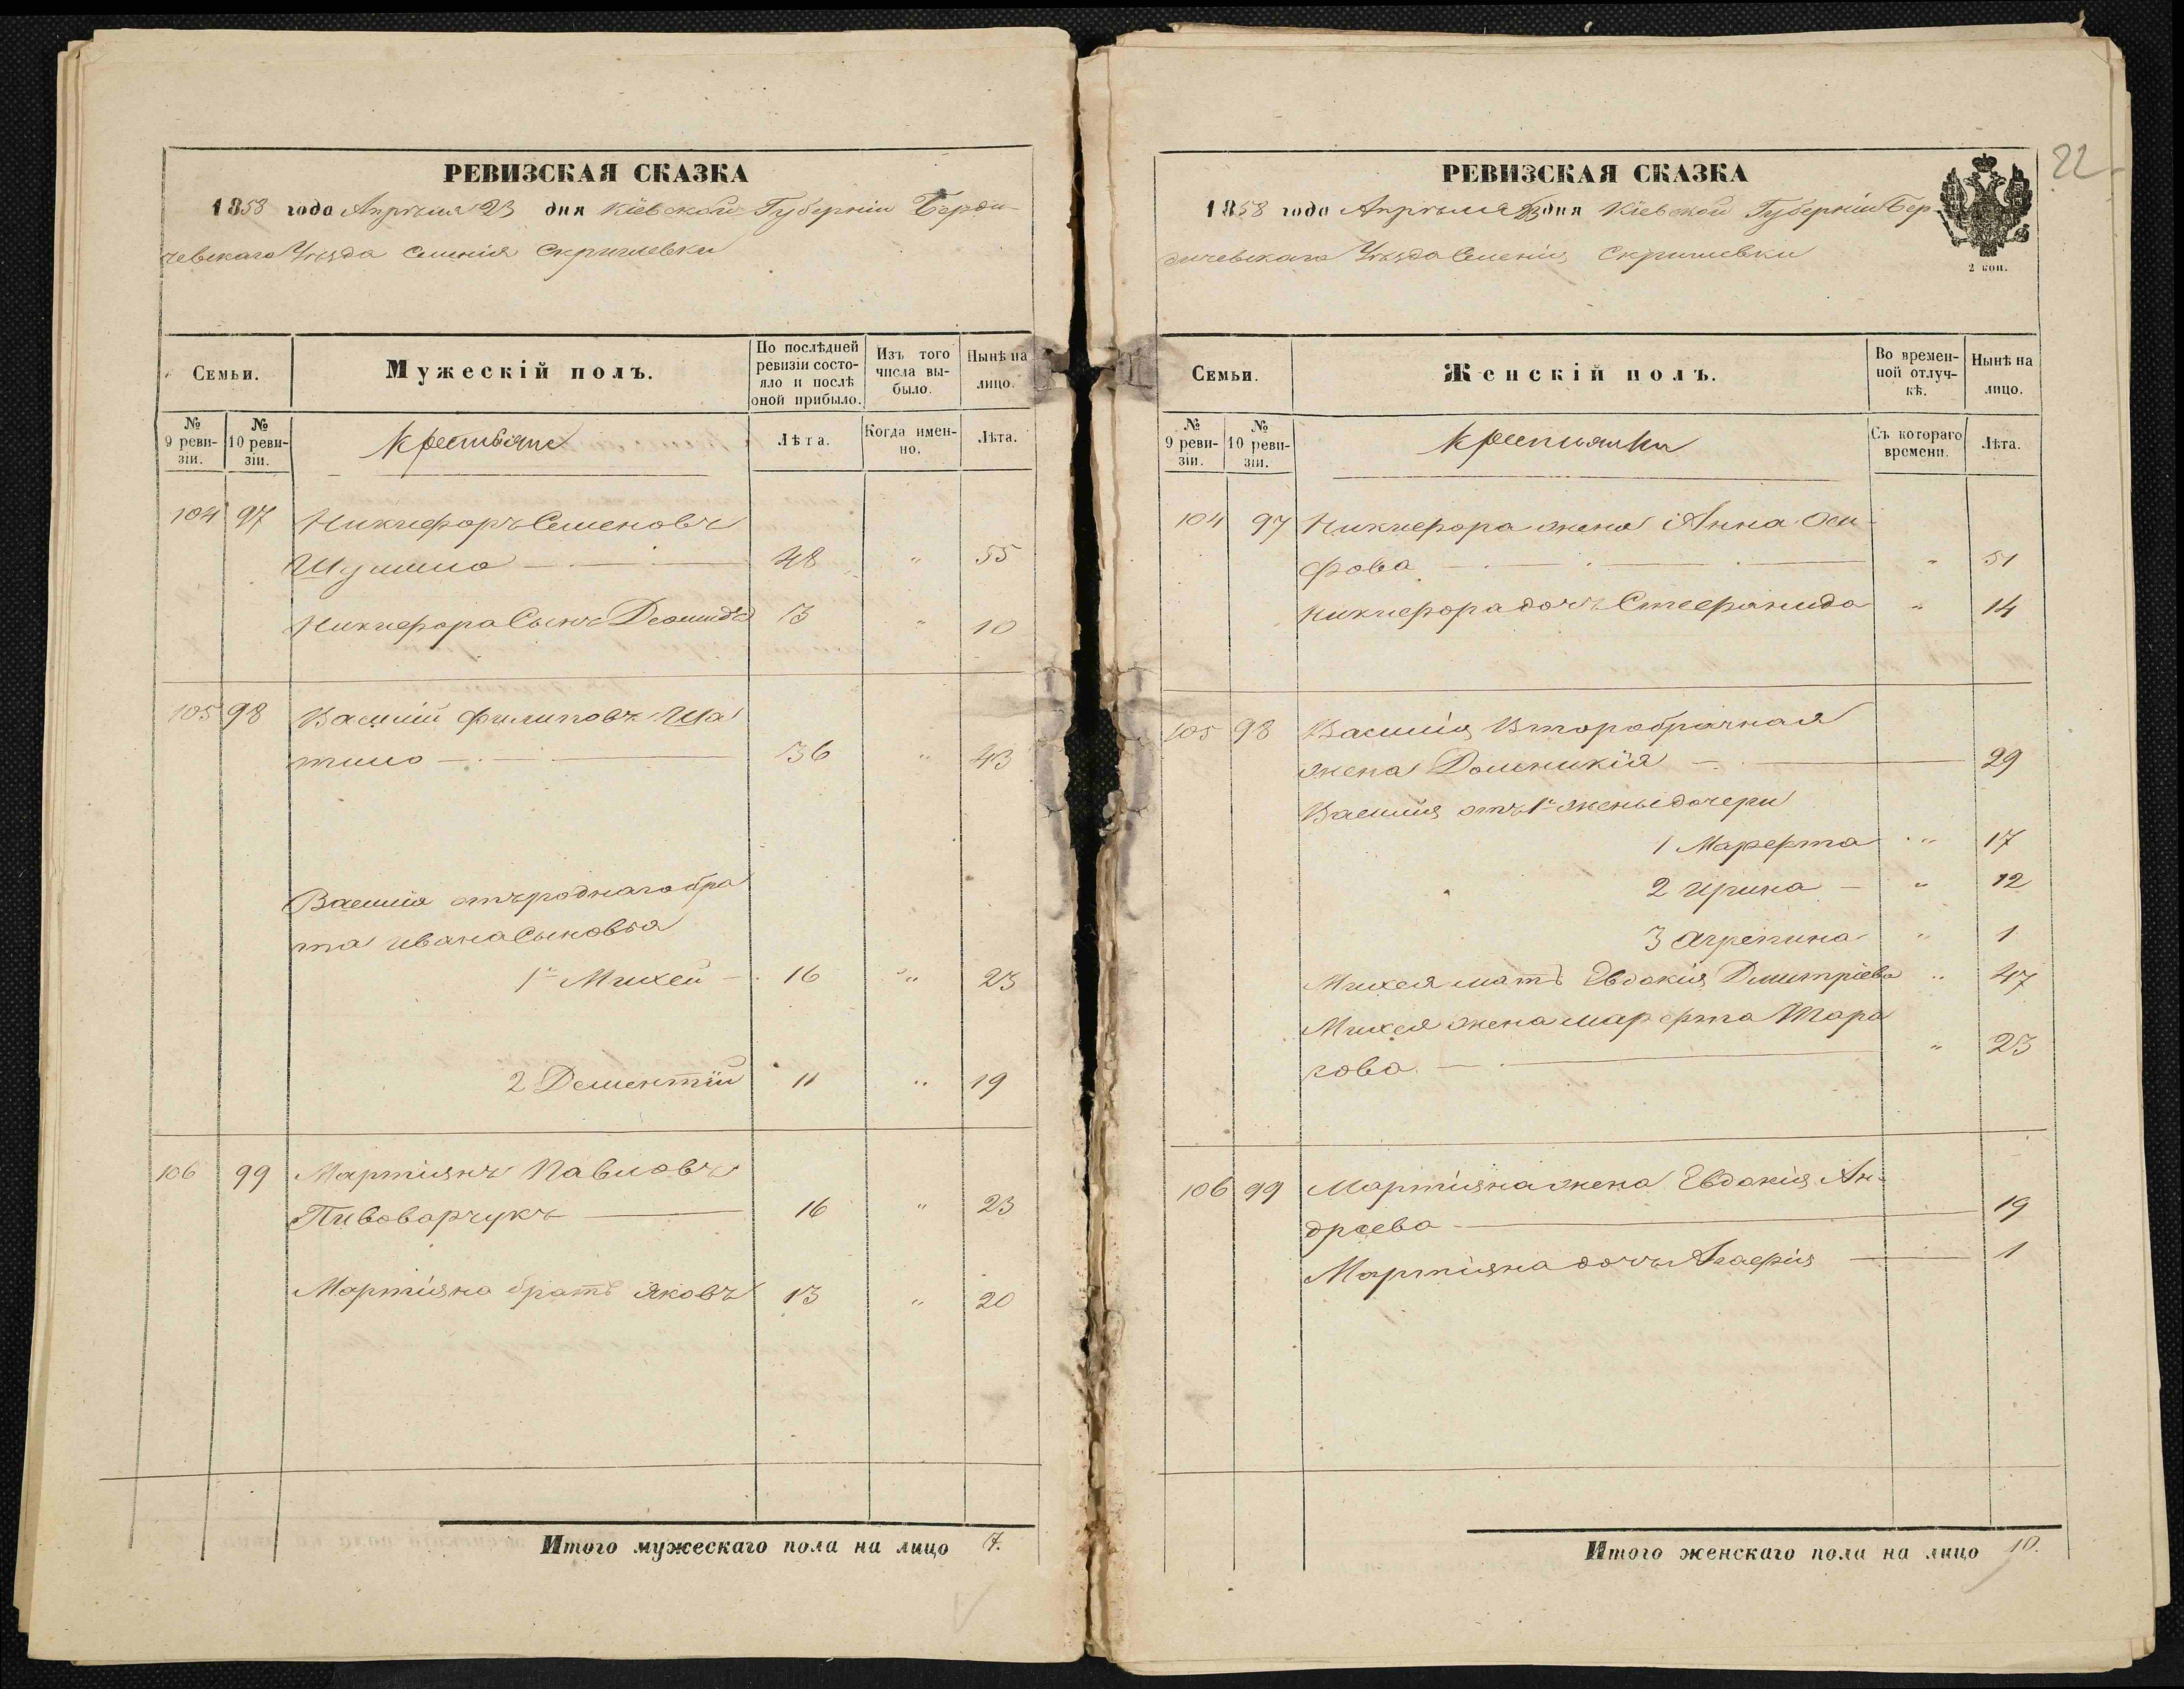 РЕВИЗСКАЯ СКАЗКА
1858 года Апреля 23 дня Кіевской Губерніи Берди-
чевскаго Уезда Селенія Скришевки
Семьи.
Мужескій полъ.
По послѣдней ревизіи состо-яло и послѣ оной прибыло.
Изъ того числа вы-было.
Нынѣ на лицо.
№ 9 реви-зіи.
№ 10 реви-зіи.
Крестьяне
Лѣта.
Когда имен-но.
Лѣта.
104 97 Никифоръ Семеновъ
48 " 55
Никифора Сынъ 13 " 10
105 98 Василій Филиповъ Ша
тило 36 " 43
Василія отъ роднаго бра
та Ивана Сыновья
1й Михей 16 " 23
2 Дементій 11 " 19
106 99 Мартіянъ Павловъ
Пивоварчукъ 16 " 23
Мартіяна братъ Яковъ 13 " 20
Итого мужескаго пола на лицо 7.
22
РЕВИЗСКАЯ СКАЗКА
1858 года Апреля 23 дня Кіевской Губерніи Бер-
дичевскаго Уезда Селенія Скришевки
2 коп.
Семьи.
Женскій полъ.
Во времен-ной отлуч-кѣ.
Нынѣ на лицо.
№ 9 реви-зіи.
№ 10 реви-зіи.
Крестьянки
Съ котораго времени.
Лѣта.
104 97 Никифора жена Анна Оси-
фова " 51
Никифора дочь Стефанида " 14
105 98 Василія Второбрачная
жена Домникія 29
Василія отъ 1й жены дочери
1 Марфта " 17
2 Ирина " 12
3 Агрепина " 1
Михея мать Евдокія Дмитріева " 47
Михея жена Марфта Тара
сова " 23
106 99 Мартіяна жена Евдокія Ан-
дреева 19
Мартіяна дочь Агафія 1
Итого женскаго пола на лицо 10.